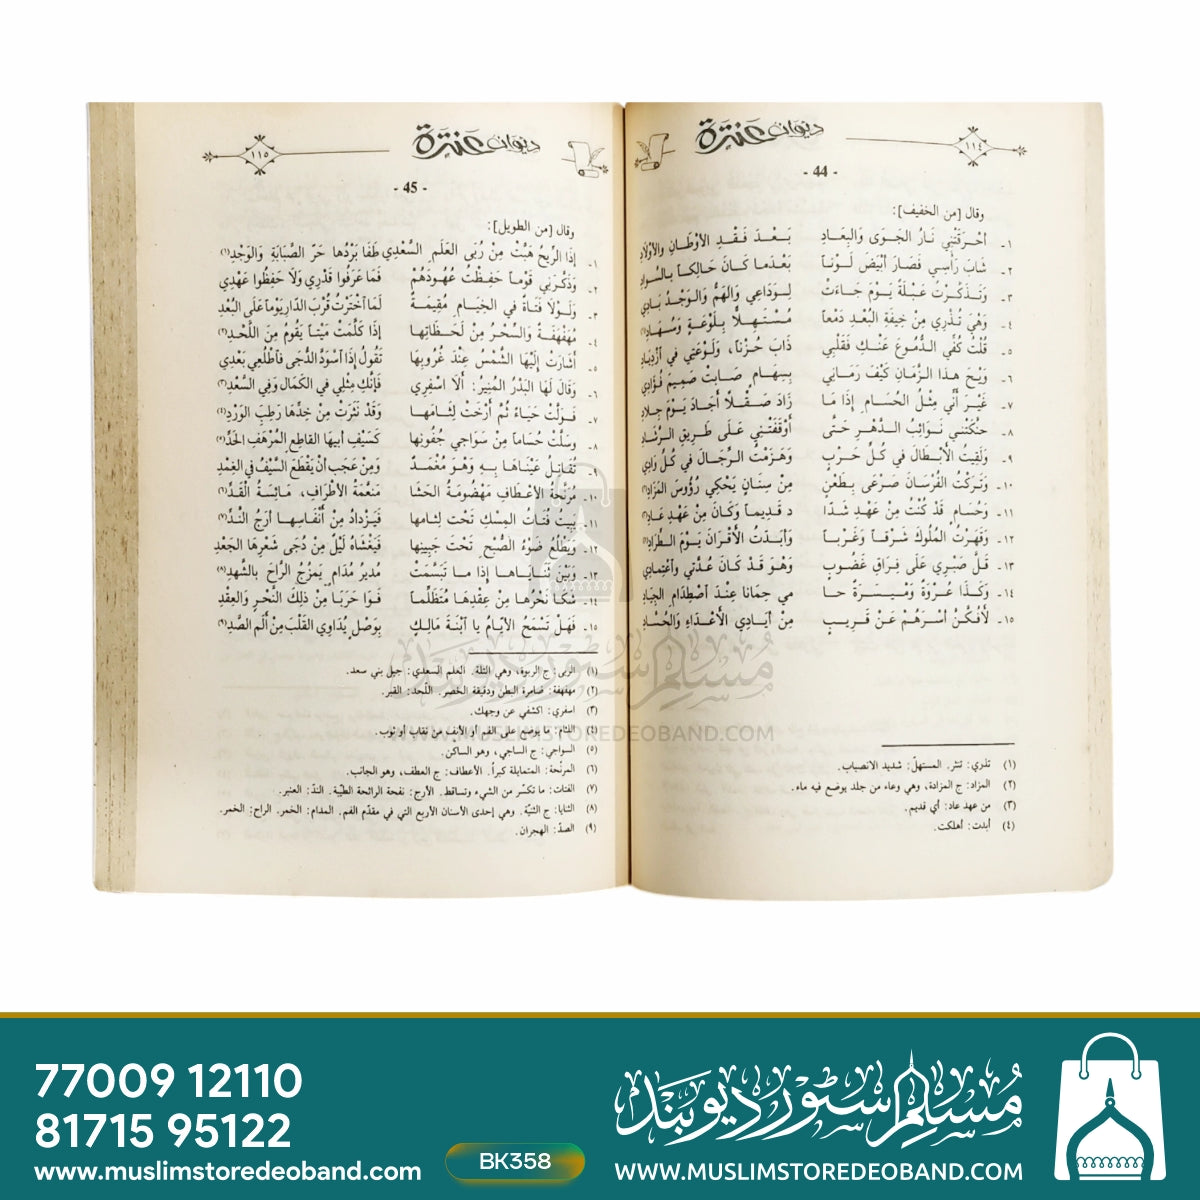 ديوان عنترة
١١٤
- 44 -
وقال [من الخفيف]:
١ـ أَحْرَقَتْنِي نَارُ الجَوَى وَالبِعَادِ بَعْدَ فَقْدِ الأَوْطَانِ وَالأَوْلَادِ
٢ـ شَابَ رَأْسِي فَصَارَ أَبْيَضَ لَوْناً بَعْدَمَا كَانَ حَالِكاً بالسَّوادِ
٣ـ وَتَذَكَّرْتُ عَبْلَةَ يَوْمَ جَاءَتْ لِوَدَاعِي وَالهَمُّ وَالوَجْدُ بَادِي
٤ـ وَهْيَ تُذْرِي مِنْ خِيفَةِ البُعْدِ دَمْعاً مُسْتَهِلًّا بِلَوْعَةٍ وَسُهَادِ(١)
٥ـ قُلْتُ كُفِّي الدُّمُوعَ عَنْكِ فَقَلْبِي ذَابَ حُزْناً، وَلَوْعَتِي في ازْدِيَادِ
٦ـ وَيْحَ هذا الزَّمَانِ كَيْفَ رَمَانِي بِسِهَامٍ صَابَتْ صَمِيمَ فُؤَادِي
٧ـ غَيْرَ أَنِّي مِثْلُ الحُسَامِ إِذَا مَا زَادَ صَقْلاً أَجَادَ يَوْمَ جِلادِ
٨ـ حَنَّكَتْنِي نَوَائِبُ الدَّهْرِ حَتَّى أَوْقَفَتْنِي عَلَى طَرِيقِ الرَّشَادِ
٩ـ وَلَقِيتُ الأَبْطَالَ في كُلِّ حَرْبٍ وَهَزَمْتُ الرِّجَالَ في كُلِّ وَادِي
١٠ـ وَتَرَكْتُ الفُرْسَانَ صَرْعَى بِطَعْنٍ مِنْ سِنَانٍ يَحْكِي رُؤُوسَ المَزَادِ(٢)
١١ـ وَحُسَامٍ قَدْ كُنْتُ مِنْ عَهْدِ شَدَّا دٍ قَدِيماً وَكَانَ مِنْ عَهْدِ عَادِ(٣)
١٢ـ وَقَهَرْتُ المُلُوكَ شَرْقاً وَغَرْباً وَأَبَدْتُ الأَقْرَانَ يَوْمَ الطِّرَادِ(٤)
١٣ـ قَلَّ صَبْرِي عَلَى فِرَاقِ غَضُوبٍ وَهْوَ قَدْ كَانَ عُدَّتِي وَاعْتِمَادِي
١٤ـ وَكَذَا عُرْوَةٌ وَمَيْسَرَةٌ حَا مِي حِمَانَا عِنْدَ اصْطِدَامِ الجِيَادِ
١٥ـ لَأَفُكَّنَّ أَسْرَهُمْ عَنْ قَرِيبٍ مِنْ أَيَادِي الأَعْدَاءِ وَالحُسَّادِ
(١) تذري: تنثر. المستهلّ: شديد الانصباب.
(٢) المزاد: ج المزادة، وهي وعاء من جلد يوضع فيه ماء.
(٣) من عهد عاد: أي قديم.
(٤) أبدت: أهلكت.
ديوان عنترة
١١٥
- 45 -
وقال [من الطويل]:
١ـ إِذَا الرِّيحُ هَبَّتْ مِنْ رُبَى العَلَمِ السَّعْدِي طَفَا بَرْدُها حَرَّ الصَّبَابَةِ وَالوَجْدِ(١)
٢ـ وَذَكَّرَنِي قَوْماً حَفِظْتُ عُهُودَهُمْ فَمَا عَرَفُوا قَدْرِي وَلَا حَفِظُوا عَهْدِي
٣ـ وَلَوْلَا فَتَاةٌ في الخِيَامِ مُقِيمَةٌ لَمَا اخْتَرْتُ قُرْبَ الدَّارِ يَوْماً عَلَى البُعْدِ
٤ـ مُهَفْهَفَةٌ وَالسِّحْرُ مِنْ لَحَظَاتِها إِذَا كَلَّمَتْ مَيْتاً يَقُومُ مِنَ اللَّحْدِ(٢)
٥ـ أَشَارَتْ إِلَيْهَا الشَّمْسُ عِنْدَ غُرُوبِهَا تَقُولُ إِذَا اسْوَدَّ الدُّجَى فَاطْلُعِي بَعْدِي
٦ـ وَقَالَ لَهَا البَدْرُ المُنِيرُ: أَلَا اسْفِرِي فَإِنَّكِ مِثْلِي في الكَمَالِ وَفِي السَّعْدِ(٣)
٧ـ فَوَلَّتْ حَيَاءً ثُمَّ أَرْخَتْ لِثَامَها وَقَدْ نَثَرَتْ مِنْ خَدِّهَا رَطِبَ الوَرْدِ(٤)
٨ـ وَسَلَّتْ حُسَاماً مِنْ سَوَاجِي جُفُونِها كَسَيْفِ أَبِيهَا القَاطِعِ المُرْهَفِ الحَدِّ(٥)
٩ـ تُقَاتِلُ عَيْنَاهَا بِهِ وَهْوَ مُغْمَدٌ وَمِنْ عَجَبٍ أَنْ يَقْطَعَ السَّيْفُ في الغِمْدِ
١٠ـ مُرَنَّحَةُ الأَعْطَافِ مَهْضُومَةُ الحَشَا مُنَعَّمَةُ الأَطْرَافِ، مَائِسَةُ القَدِّ(٦)
١١ـ يَبِيتُ فُتَاتُ المِسْكِ تَحْتَ لِثَامِها فَيَزْدَادُ مِنْ أَنْفَاسِها أَرَجُ النَّدِّ(٧)
١٢ـ وَيَطْلُعُ ضَوْءُ الصُّبْحِ تَحْتَ جَبِينِها فَيَغْشَاهُ لَيْلٌ مِنْ دُجَى شَعْرِهَا الجَعْدِ
١٣ـ وَبَيْنَ ثَنَايَاهَا إِذَا مَا تَبَسَّمَتْ مُدِيرُ مُدَامٍ يَمْزُجُ الرَّاحَ بالشَّهْدِ(٨)
١٤ـ شَكَا نَحْرُهَا مِنْ عِقْدِهَا مُتَظَلِّماً فَوَا حَرَبَا مِنْ ذلِكَ النَّحْرِ وَالعِقْدِ
١٥ـ فَهَلْ تَسْمَحُ الأَيَّامُ يا ابْنَةَ مَالِكٍ بِوَصْلٍ يُدَاوِي القَلْبَ مِنْ أَلَمِ الصَّدِّ(٩)
(١) الربى: ج الربوة، وهي التلة. العلم السعدي: جبل بني سعد.
(٢) مهفهفة: ضامرة البطن ودقيقة الخصر. اللّحد: القبر.
(٣) اسفري: اكشفي عن وجهك.
(٤) اللثام: ما يوضع على الفم أو الأنف من نقاب أو ثوب.
(٥) السواجي: ج الساجي، وهو الساكن.
(٦) المرنّحة: المتمايلة كبراً. الأعطاف: ج العطف، وهو الجانب.
(٧) الفتات: ما تكسّر من الشيء وتساقط. الأرج: نفحة الرائحة الطيّبة. الندّ: العنبر.
(٨) الثنايا: ج الثنيّة، وهي إحدى الأسنان الأربع التي في مقدّم الفم. المدام: الخمر. الراح: الخمر.
(٩) الصدّ: الهجران.
مسلم سٹور دیوبند
WWW.MUSLIMSTOREDEOBAND.COM
77009 12110
81715 95122
www.muslimstoredeoband.com
BK358
مسلم سٹور دیوبند
WWW.MUSLIMSTOREDEOBAND.COM